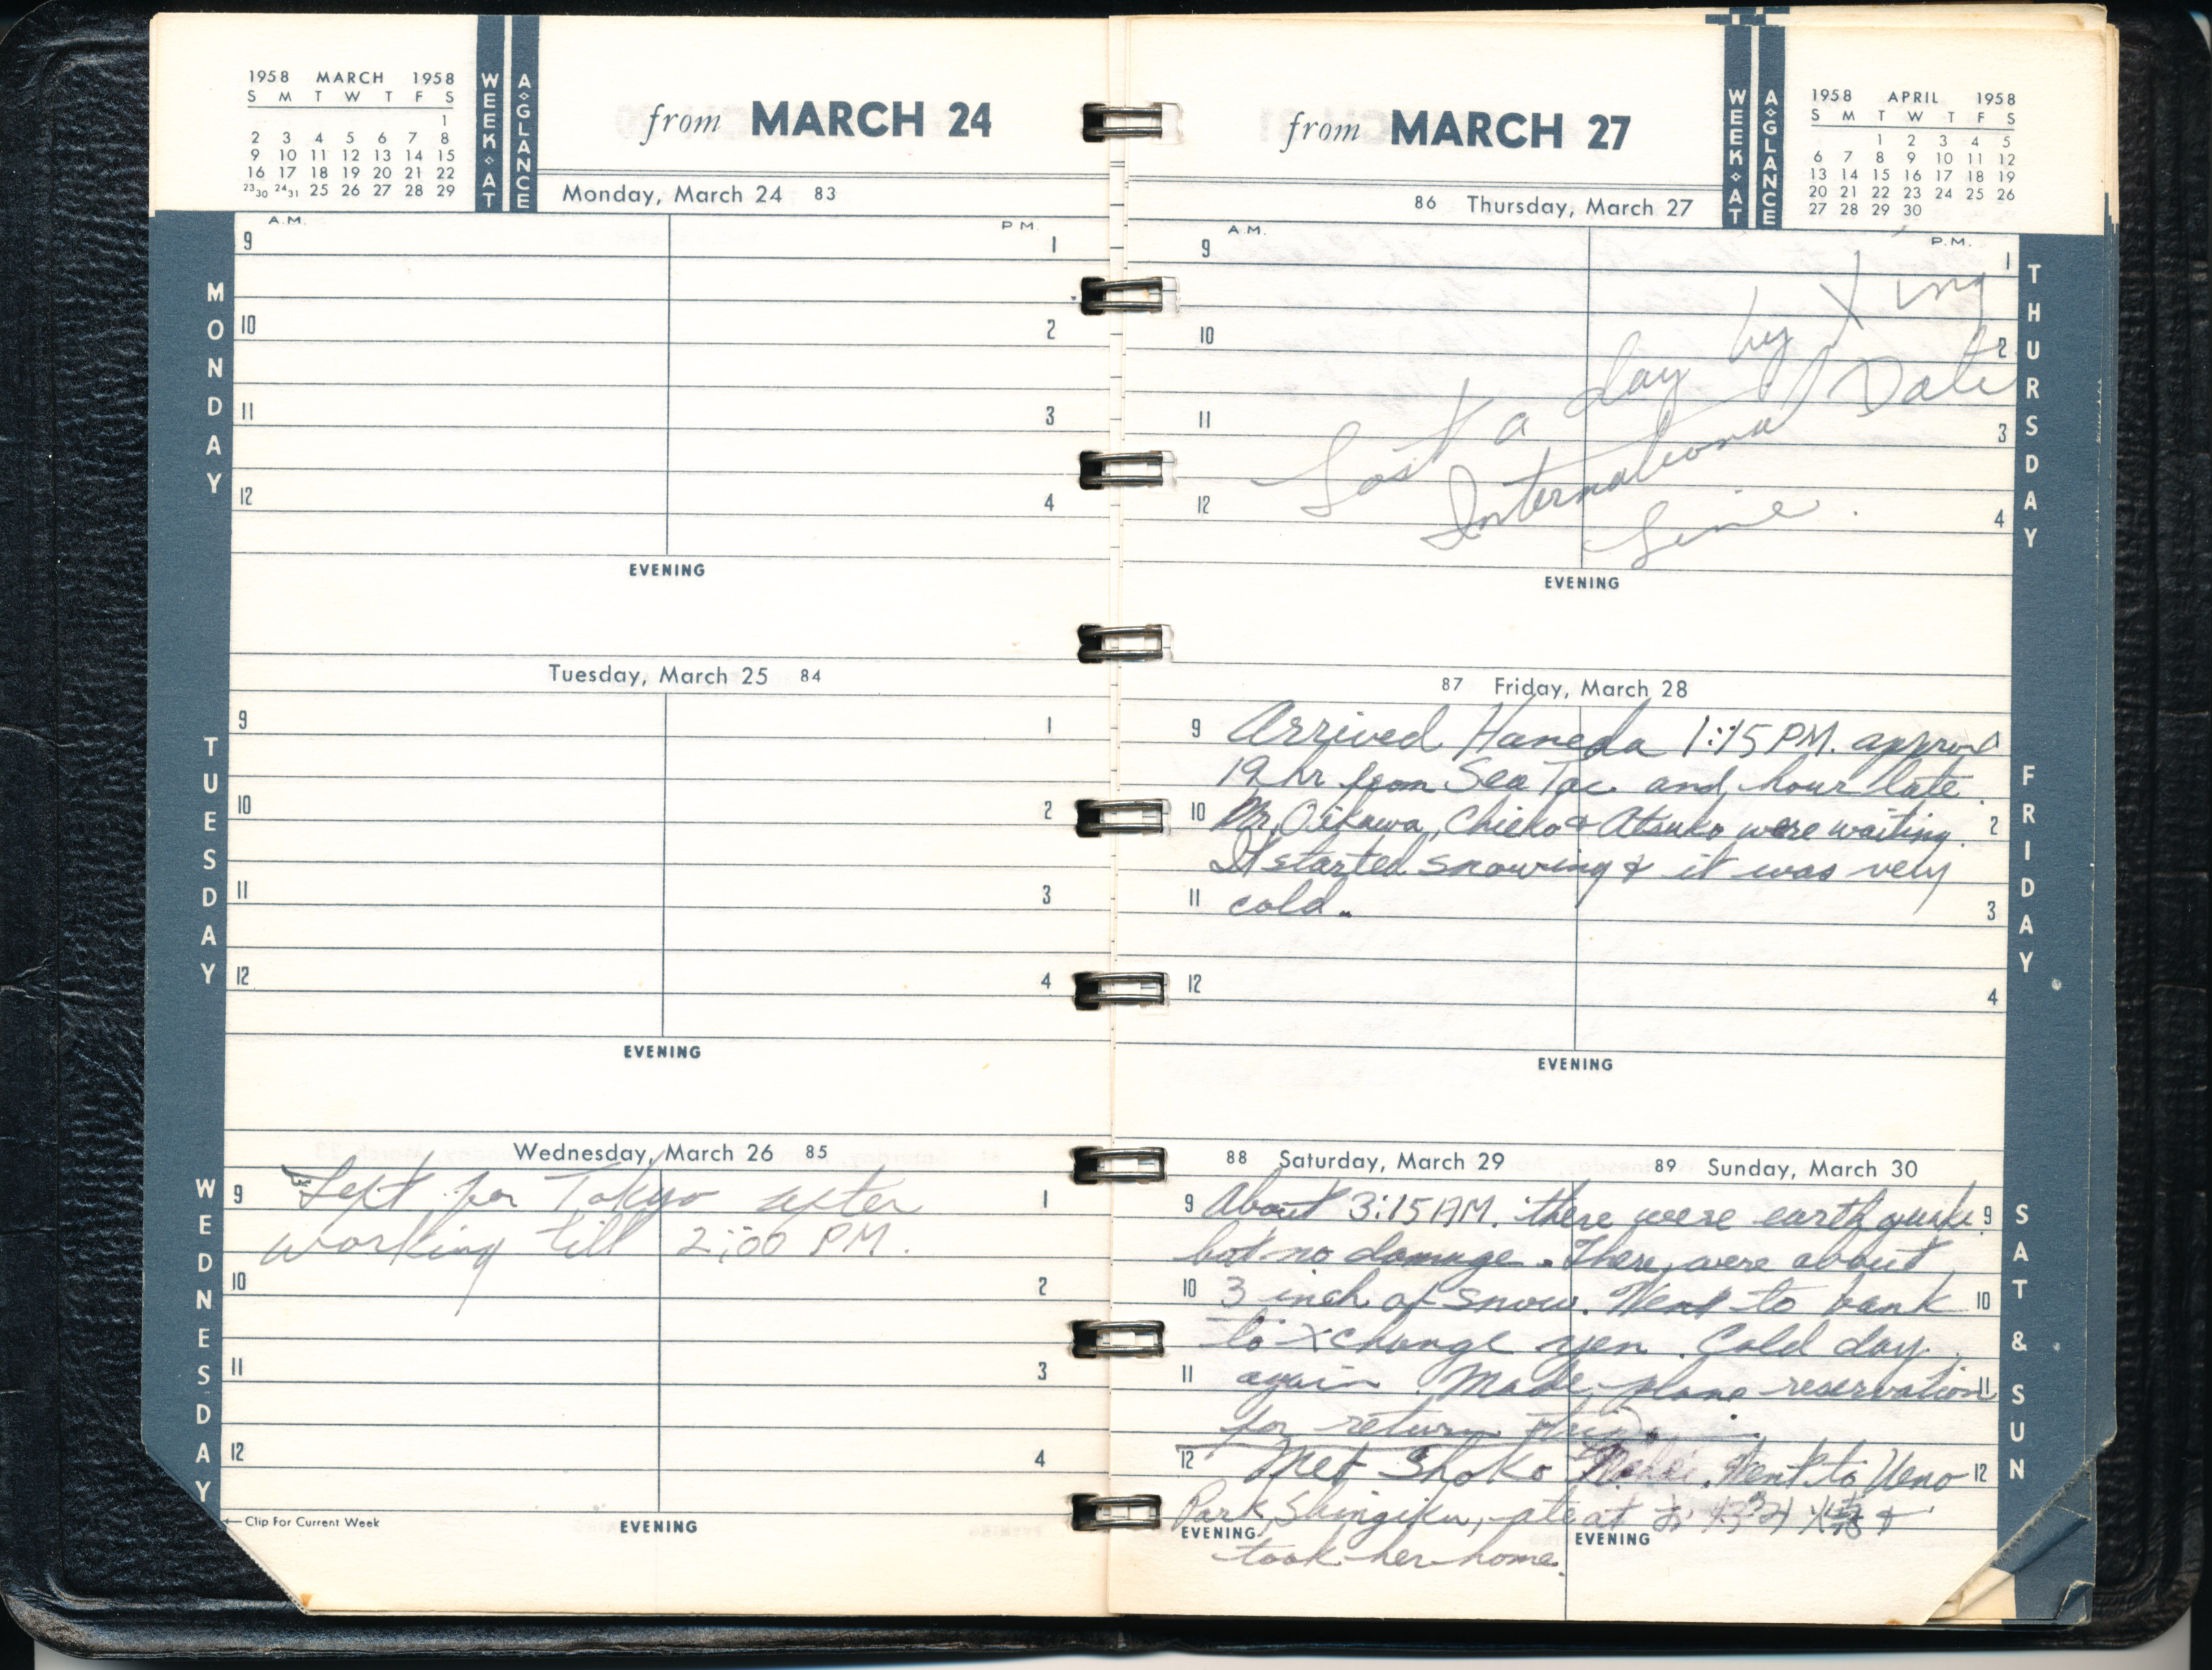 1958 MARCH 1958
S M T W T F S
1
2 3 4 5 6 7 8
9 10 11 12 13 14 15
16 17 18 19 20 21 22
23 30 24 31 25 26 27 28 29
WEEK AT
A GLANCE
from MARCH 24
Monday, March 24 83
A.M. P.M.
MONDAY
9 1
10 2
11 3
12 4
EVENING
Tuesday, March 25 84
TUESDAY
9 1
10 2
11 3
12 4
EVENING
Wednesday, March 26 85
WEDNESDAY
9 Left for Tokyo after 1
working till 2:00 PM.
10 2
11 3
12 4
←Clip For Current Week
EVENING
from MARCH 27
WEEK AT
A GLANCE
1958 APRIL 1958
S M T W T F S
1 2 3 4 5
6 7 8 9 10 11 12
13 14 15 16 17 18 19
20 21 22 23 24 25 26
27 28 29 30
86 Thursday, March 27
A.M. P.M.
THURSDAY
9 1
10 2
11 3
12 4
Lost a day by Xing
International Date
Line.
EVENING
87 Friday, March 28
FRIDAY
9 Arrived Haneda 1:15 PM. approx
19 hr from Sea Tac and hour late.
10 Mr. Oikawa, Chieko & Atsuko were waiting. 2
It started snowing & it was very
11 cold. 3
12 4
EVENING
88 Saturday, March 29 89 Sunday, March 30
SAT & SUN
9 About 3:15 AM. there were earthquake 9
but no damage. There were about
10 3 inch of snow. Went to bank 10
to Xchange yen. Cold day
11 again. Made plane reservation 11
for return
12 Met Shoko Went to Ueno 12
Park, Shinjiku, ate at &
EVENING EVENING
took her home.